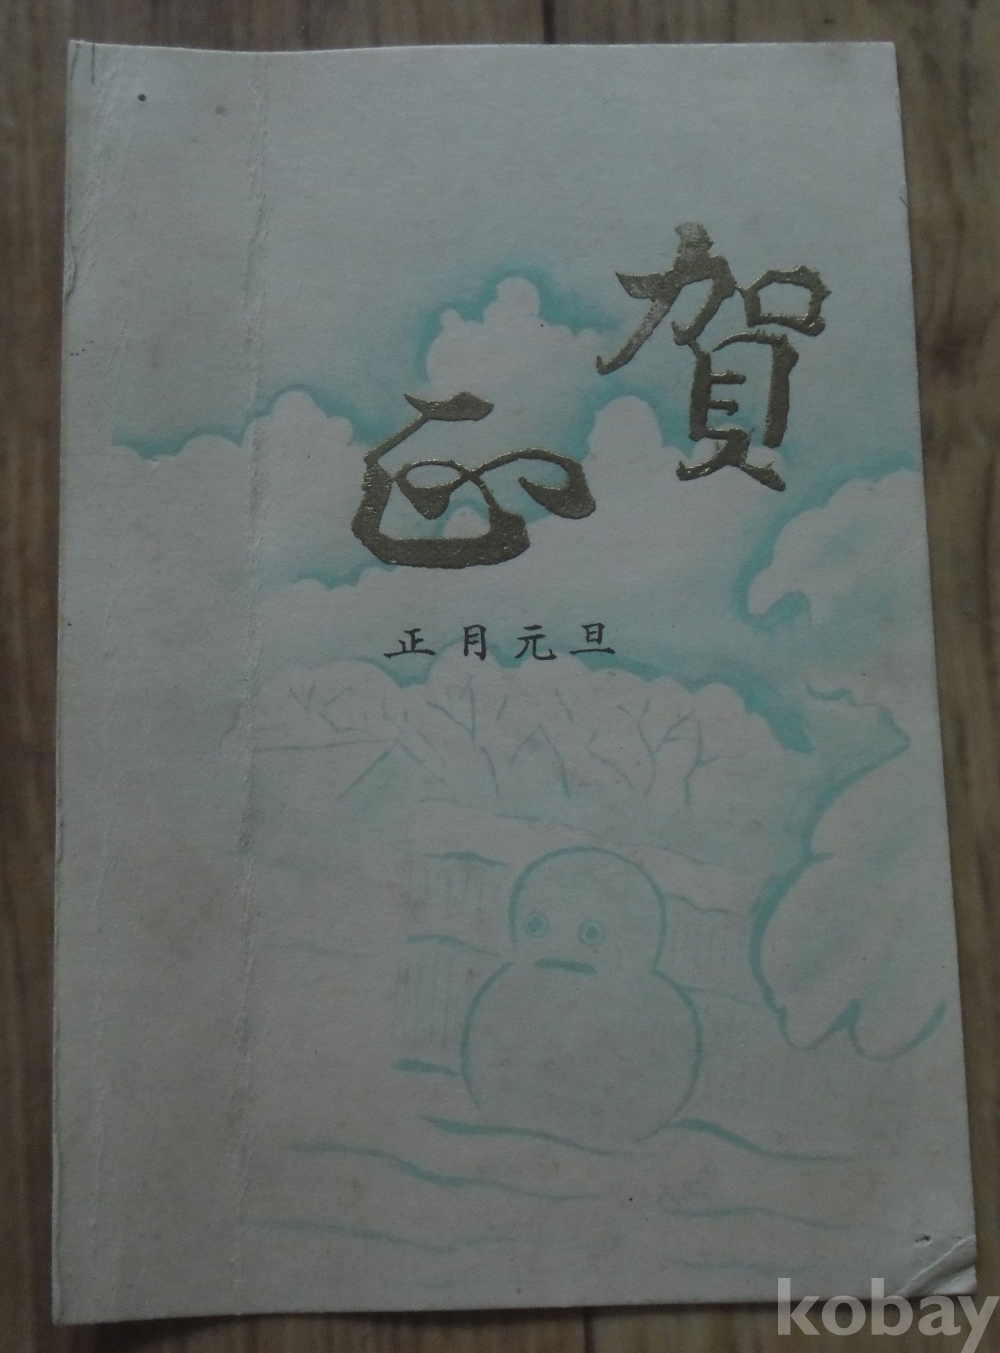 賀正
正月元旦
kobay